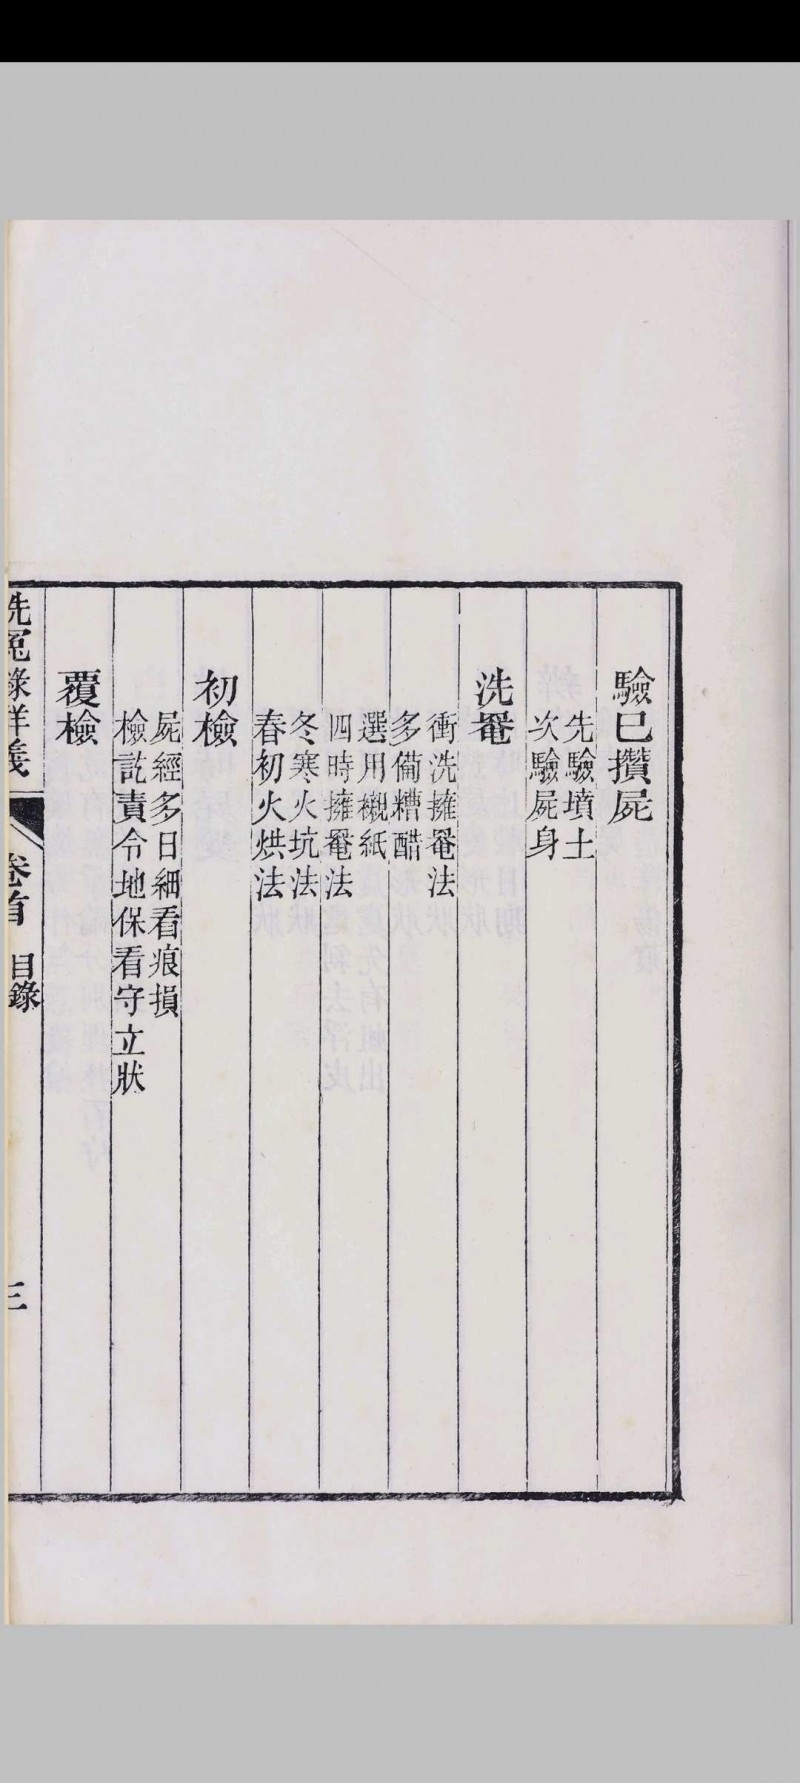 驗已攢屍
先驗墳土
次驗屍身
洗罨
衝洗擁罨法
多備糟醋
選用襯紙
四時擁罨法
冬寒火坑法
春初火烘法
初檢
屍經多日細看痕損
檢訖責令地保看守立狀
覆檢
洗冤錄詳義
卷首
目錄
三